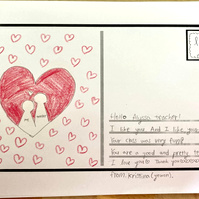 Hello Alyssa teacher!
I like you. And I like your
Your class was very
You are a good and pretty
I love you♡ Thank you
from. kristina (